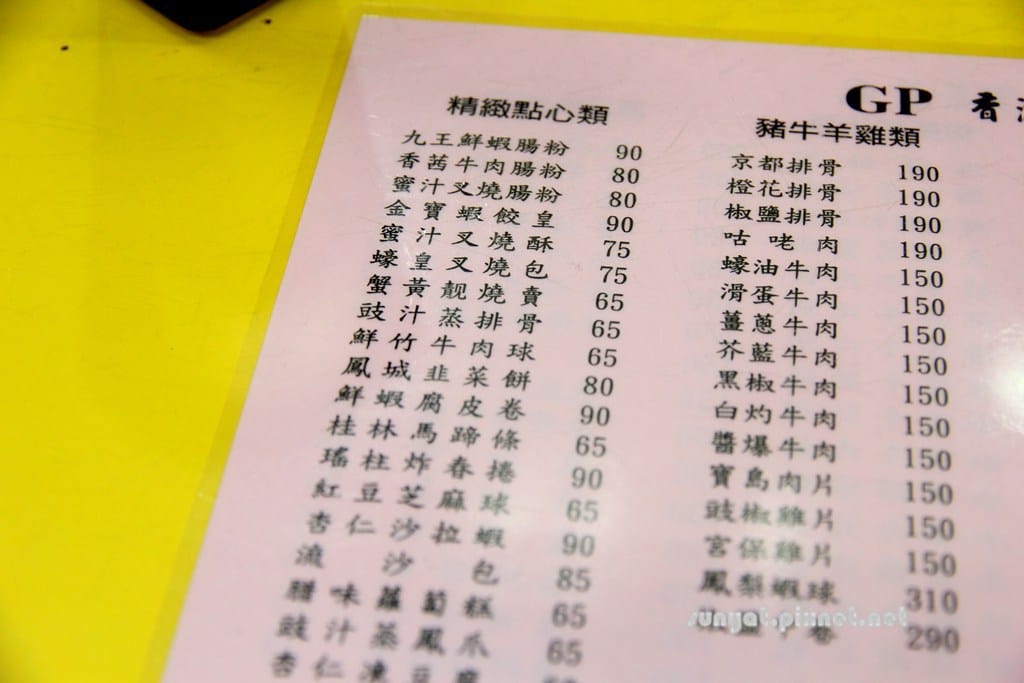 GP 香
精緻點心類
九王鮮蝦腸粉 90
香茜牛肉腸粉 80
蜜汁叉燒腸粉 80
金寶蝦餃皇 90
蜜汁叉燒酥 75
蠔皇叉燒包 75
蟹黃靚燒賣 65
豉汁蒸排骨 65
鮮竹牛肉球 65
鳳城韭菜餅 80
鮮蝦腐皮卷 90
桂林馬蹄條 65
瑤柱炸春捲 90
紅豆芝麻球 65
杏仁沙拉蝦 90
流沙包 85
臘味蘿蔔糕 65
豉汁蒸鳳爪 65
杏仁凍豆腐
豬牛羊雞類
京都排骨 190
橙花排骨 190
椒鹽排骨 190
咕咾肉 190
蠔油牛肉 150
滑蛋牛肉 150
薑蔥牛肉 150
芥藍牛肉 150
黑椒牛肉 150
白灼牛肉 150
醬爆牛肉 150
寶島肉片 150
豉椒雞片 150
宮保雞片 150
鳳梨蝦球 310
卷 290
sunyat.pixnet.net